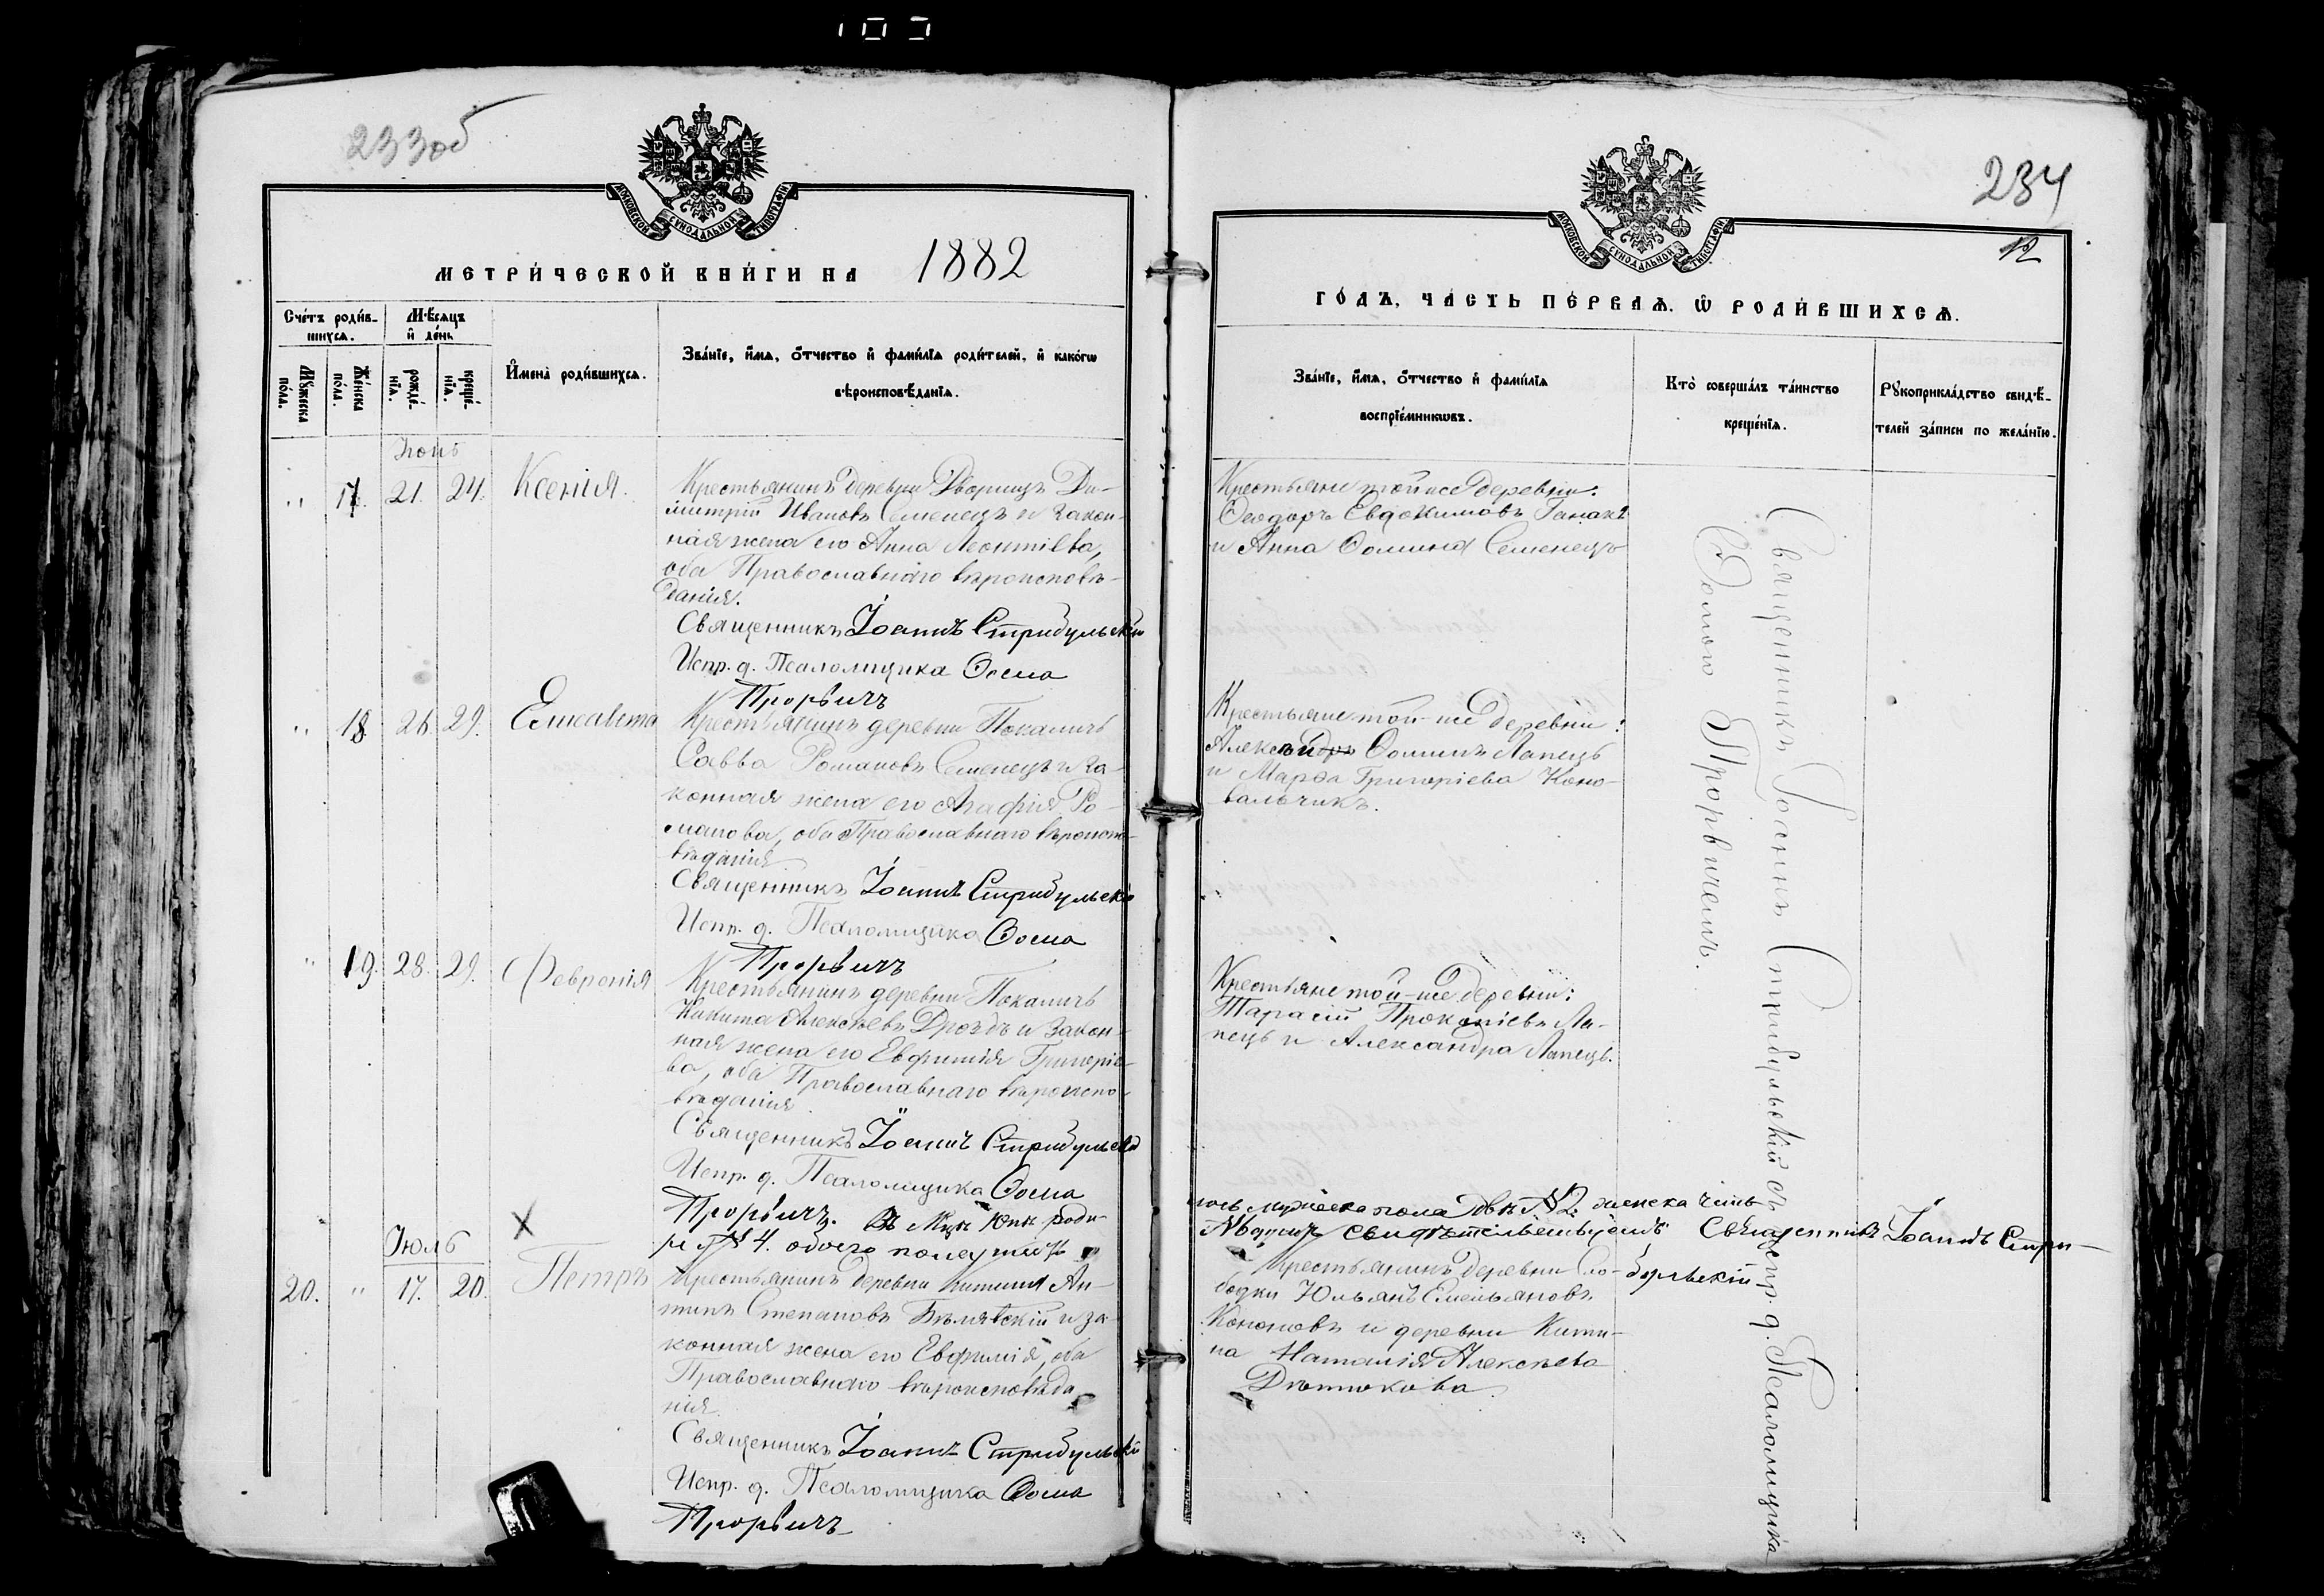 233об
МОСКОВСКОЙ СѴНОДАЛЬНОЙ ТИПОГРАФІИ
МЕТРИ́ЧЕСКОЙ КНИ́ГИ НА 1882
Сче́тъ роди́в-
шихсѧ.
Мѣ́сѧцъ
и҆ де́нь
Мꙋ́жеска
по́ла.
Же́нска
по́ла.
рожде́-
нїѧ.
креще́-
нїѧ.
И҆мена̀ роди́вшихсѧ.
Зва́нїе, и҆́мѧ, ѻ҆́тчество и҆ фами́лїѧ роди́телей, и҆ како́гѡ
вѣроисповѣ́данїѧ.
Іюнь
" 17. 21. 24. Ксенія.
Крестьянинъ деревни Дворищъ Ди-
митрій Ивановъ Семенецъ и закон-
ная жена его Анна Леонтіева,
оба Православнаго вѣроисповѣ-
данія.
Священникъ Іоаннъ Стрибульскій
Испр. д. Псаломщика Ѳома
Прорвичъ
" 18 26. 29. Елисавета
Крестьянинъ деревни Покаличъ
Савва Романовъ Семенецъ и за-
конная жена его Агафія Ро-
манова, оба Православнаго вѣроиспо-
вѣданія
Священникъ Іоаннъ Стрибульскій
Испр. д. Псаломщика Ѳома
Прорвичъ
" 19. 28. 29. Февронія
Крестьянинъ деревни Покаличъ
Никита Алексѣевъ Дроздъ и закон-
ная жена его Евфимія Григоріе-
ва, оба Православнаго вѣроиспо-
вѣданія
Священникъ Іоаннъ Стрибульскій
Испр. д. Псаломщика Ѳома
Прорвичъ. Въ Юнѣ роди-
№ 4. обоего пола
Х
Іюль
20. " 17. 20. Петръ
Крестьянинъ деревни Китина Ан-
типъ Степановъ Бѣлявскій и за-
конная жена его Евфимія, оба
Православнаго вѣроисповѣда-
нія.
Священникъ Іоаннъ Стрибульскій
Испр. д. Псаломщика Ѳома
Прорвичъ
234
12
МОСКОВСКОЙ СѴНОДАЛЬНОЙ ТИПОГРАФІИ
ГО́ДЪ, ЧА́СТЬ ПЕ́РВАѦ. Ѡ҆ РОДИ́ВШИХСѦ.
Зва́нїе, и҆́мѧ, ѻ҆́тчество и҆ фами́лїѧ
воспрїе́мникѡвъ.
Кто̀ соверша́лъ та́инство
креще́нїѧ.
Рꙋкоприкла́дство свидѣ́-
телей за́писи по жела́нїю.
Крестьяне той же деревни:
Ѳеодоръ Евдокимовъ
и Анна Ѳомина Семенецъ
Крестьяне той-же деревни:
Ѳоминъ Лапецъ
и Марѳа Григоріева Коно-
вальчикъ.
Крестьяне той-же деревни:
Тарасій Прокопіевъ Ла-
пецъ и Александра Лапецъ.
лось мужеска пола два № 2. женска
свидѣтельствуемъ Священникъ Іоаннъ Стри-
бульскій
Крестьянинъ деревни Сло-
бодки Юльянъ Емельяновъ
Кононовъ и деревни Кити-
на Наталія Алексѣева
Священникъ Іоаннъ Стрибульскій съ испр. д. Псаломщика
Ѳомою Прорвичемъ.